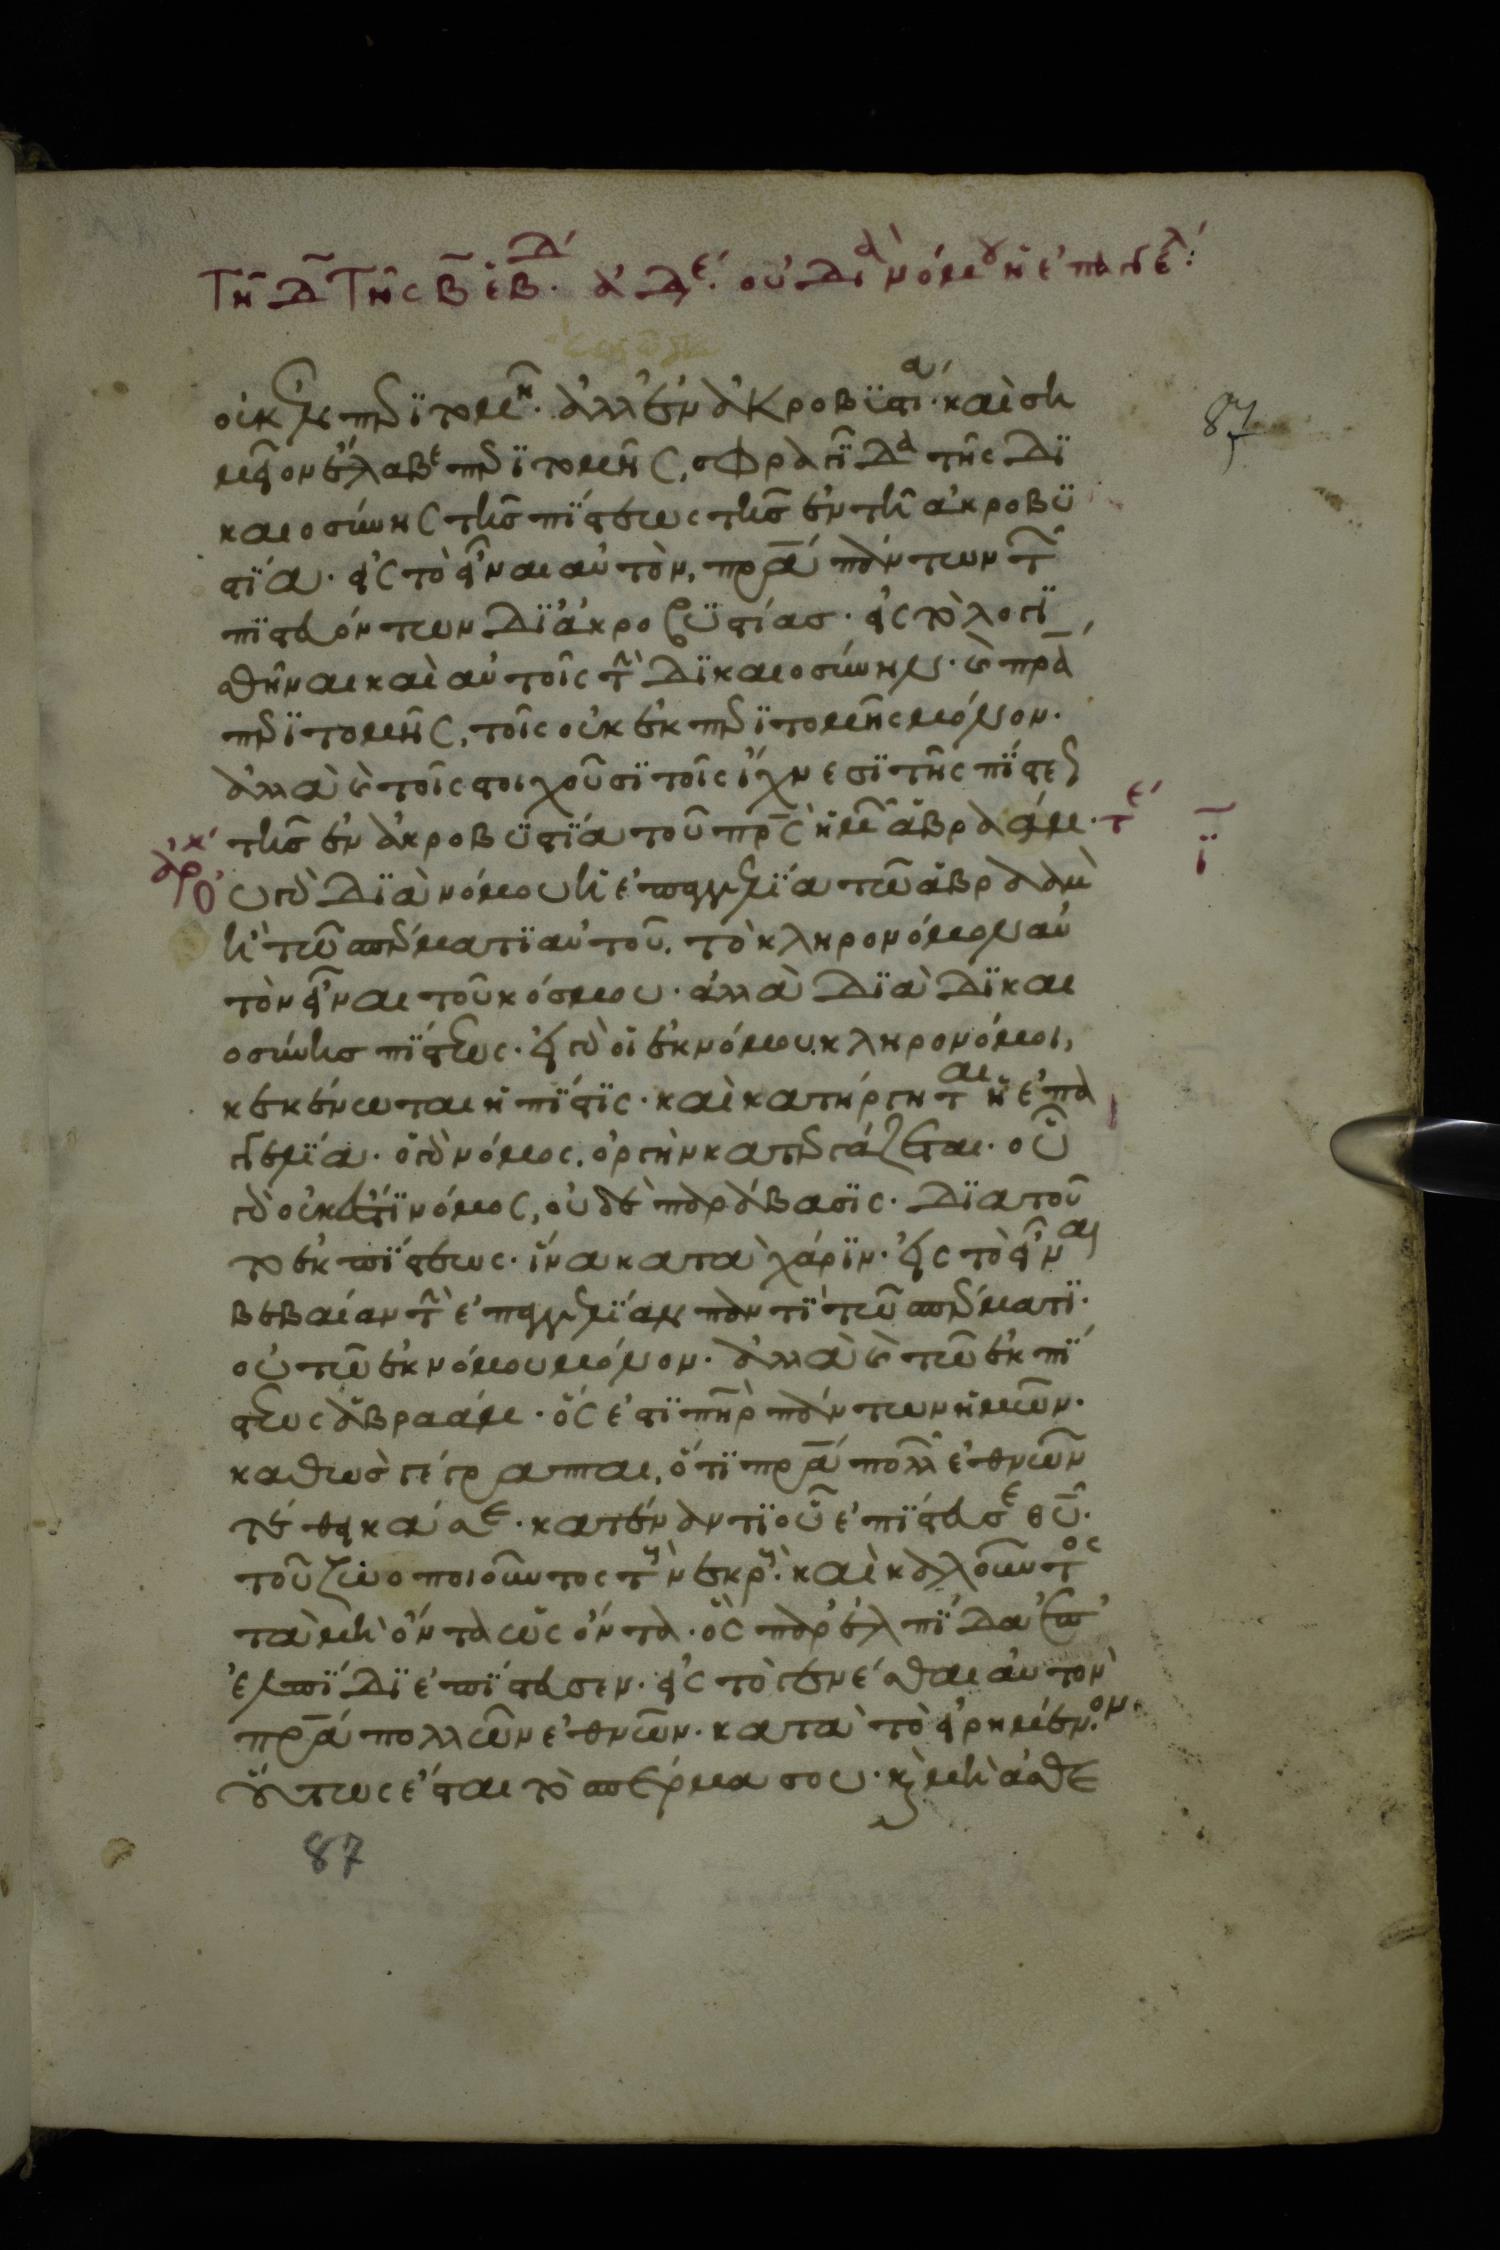 Τῆ Δ̄ Τῆς Β̄ ἑβδ. ἀδε. οὐ διὰ νόμου ἡ ἐπαγγελ:
οὐκ ἐν περϊτομῆ· ἀλλ' ἐν ἀκροβϋστία· καὶ ση
87
μεῖον ἔλαβε περϊτομῆς, σφραγῖδα τῆς δϊ
καιοσύνης τῆς πίστεως τῆς ἐν τῆ ἀκροβϋ
στία· εἰς τὸ εἶναι αὐτὸν, πρ̄α πάντων τῶν
πϊστευόντων δϊ' ἀκροβϋστίας· εἰς τὸ λογϊ
σθῆναι καὶ αὐτοῖς τὴν δϊκαιοσύνην· καὶ πρ̄α
περϊτομῆς, τοῖς οὐκ ἐκ περϊτομῆς μόνον·
ἀλλὰ καὶ τοῖς στοιχοῦσϊ τοῖς ἴχνεσϊ τῆς πίστεως
τῆς ἐν ἀκροβϋστία τοῦ πρ̄ς ἡμῶν ἀβραάμ· τε
ϊ
ἀρχ
Οὐ γὰρ δϊὰ νόμου ἡ ἐπαγγελία τῶ ἀβραὰμ
ἢ τῶ σπέρματϊ αὐτοῦ. τὸ κληρονόμον αὐ
τὸν εἶναι τοῦ κόσμου· ἀλλὰ δϊὰ δϊκαι
οσύνης πίστεως· εἰ γὰρ οἱ ἐκ νόμου κληρονόμοι,
κεκένωται ἡ πίστϊς· καὶ κατήργηται ἡ ἐπα
γγελία· ὁ γὰρ νόμος, ὀργὴν κατεργάζεται· οὗ
γὰρ οὐκ ἔστϊ νόμος, οὐδὲ παράβασϊς· δϊατοῦ
το ἐκ πίστεως· ἵνα κατὰ χάρϊν· εἰς τὸ εἶναι
βεβαίαν τὴν ἐπαγγελίαν παντὶ τῶ σπέρματϊ·
οὐ τῶ ἐκ νόμου μόνον· ἀλλὰ καὶ τῶ ἐκ πί
στεως ἀβραάμ· ὅς ἐστϊ πὴρ πάντων ἡμῶν·
καθὼς γέγραπται, ὅτϊ πρ̄α πολλῶν ἐθνῶν
τέθεικά σε· κατέναντϊ οὗ ἐπίστευσε θῡ·
τοῦ ζωοποιοῦντος τοὺς νεκρούς· καὶ καλοῦντος
τὰ μὴ ὄντα ὡς ὄντα· ὃς παρ' ἐλπίδα ἐπ'
ἐλπίδϊ ἐπίστευσεν· εἰς τὸ γενέσθαι αὐτὸν
πρ̄α πολλῶν ἐθνῶν· κατὰ τὸ εἰρημένον·
οὕτως ἔσται τὸ σπέρμα σου· καὶ μὴ ἀσθε
87